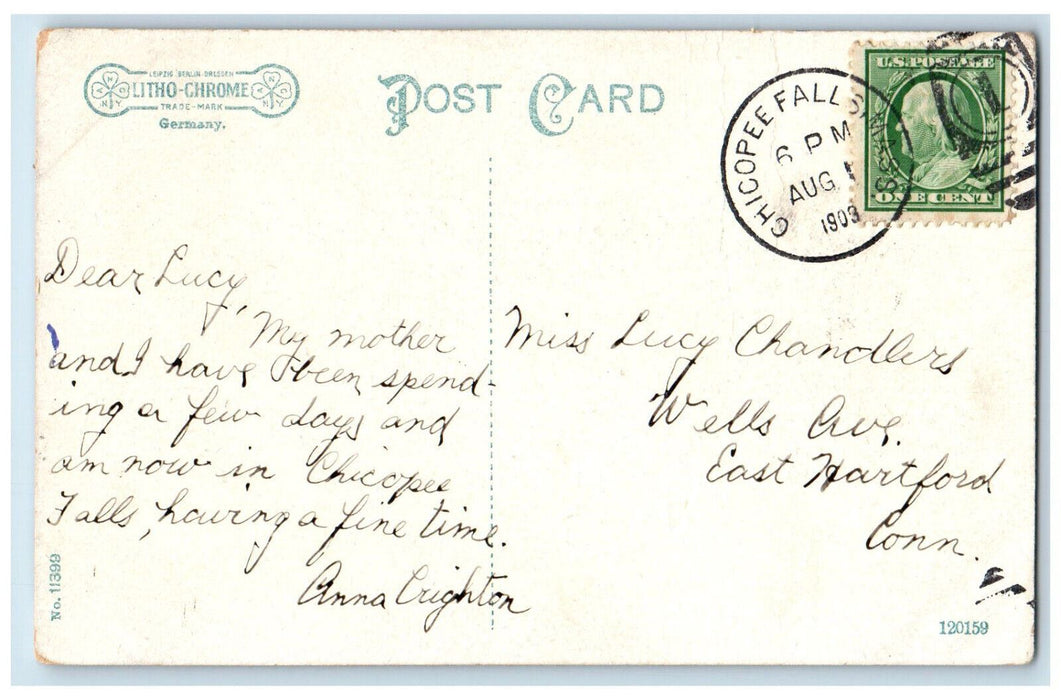 LEIPZIG BERLIN DRESDEN
LITHO-CHROME
TRADE-MARK
Germany.
POST CARD
CHICOPEE FALLS, MASS.
6 PM
AUG
1909
U.S. POSTAGE
ONE CENT
Dear Lucy,
My mother
and I have been spend-
ing a few days and
am now in Chicopee
Falls, having a fine time.
Anna Crighton
Miss Lucy Chandlers
Wells Ave.
East Hartford
Conn.
No. 11399
120159